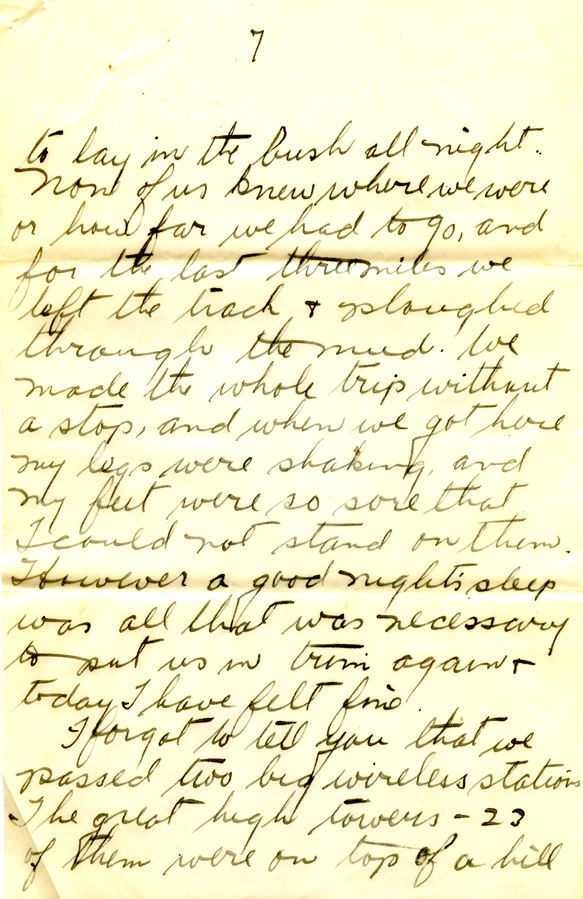 7
to lay in the bush all night.
Non of us knew where we were
or how far we had to go, and
for the last three miles we
left the track & ploughed
through the mud. We
made the whole trip without
a stop, and when we got here
my legs were shaking, and
my feet were so sore that
I could not stand on them.
However a good nights sleep
was all that was necessary
to put us in trim again &
today I have felt fine.
I forgot to tell you that we
passed two big wireless stations
The great high towers - 23
of them were on top of a hill